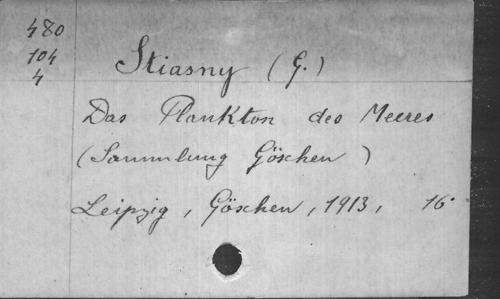 480
104
4
Stiasny (G.)
Das Plankton des Meeres
(Sammlung Göschen)
Leipzig, Göschen, 1913, 16°